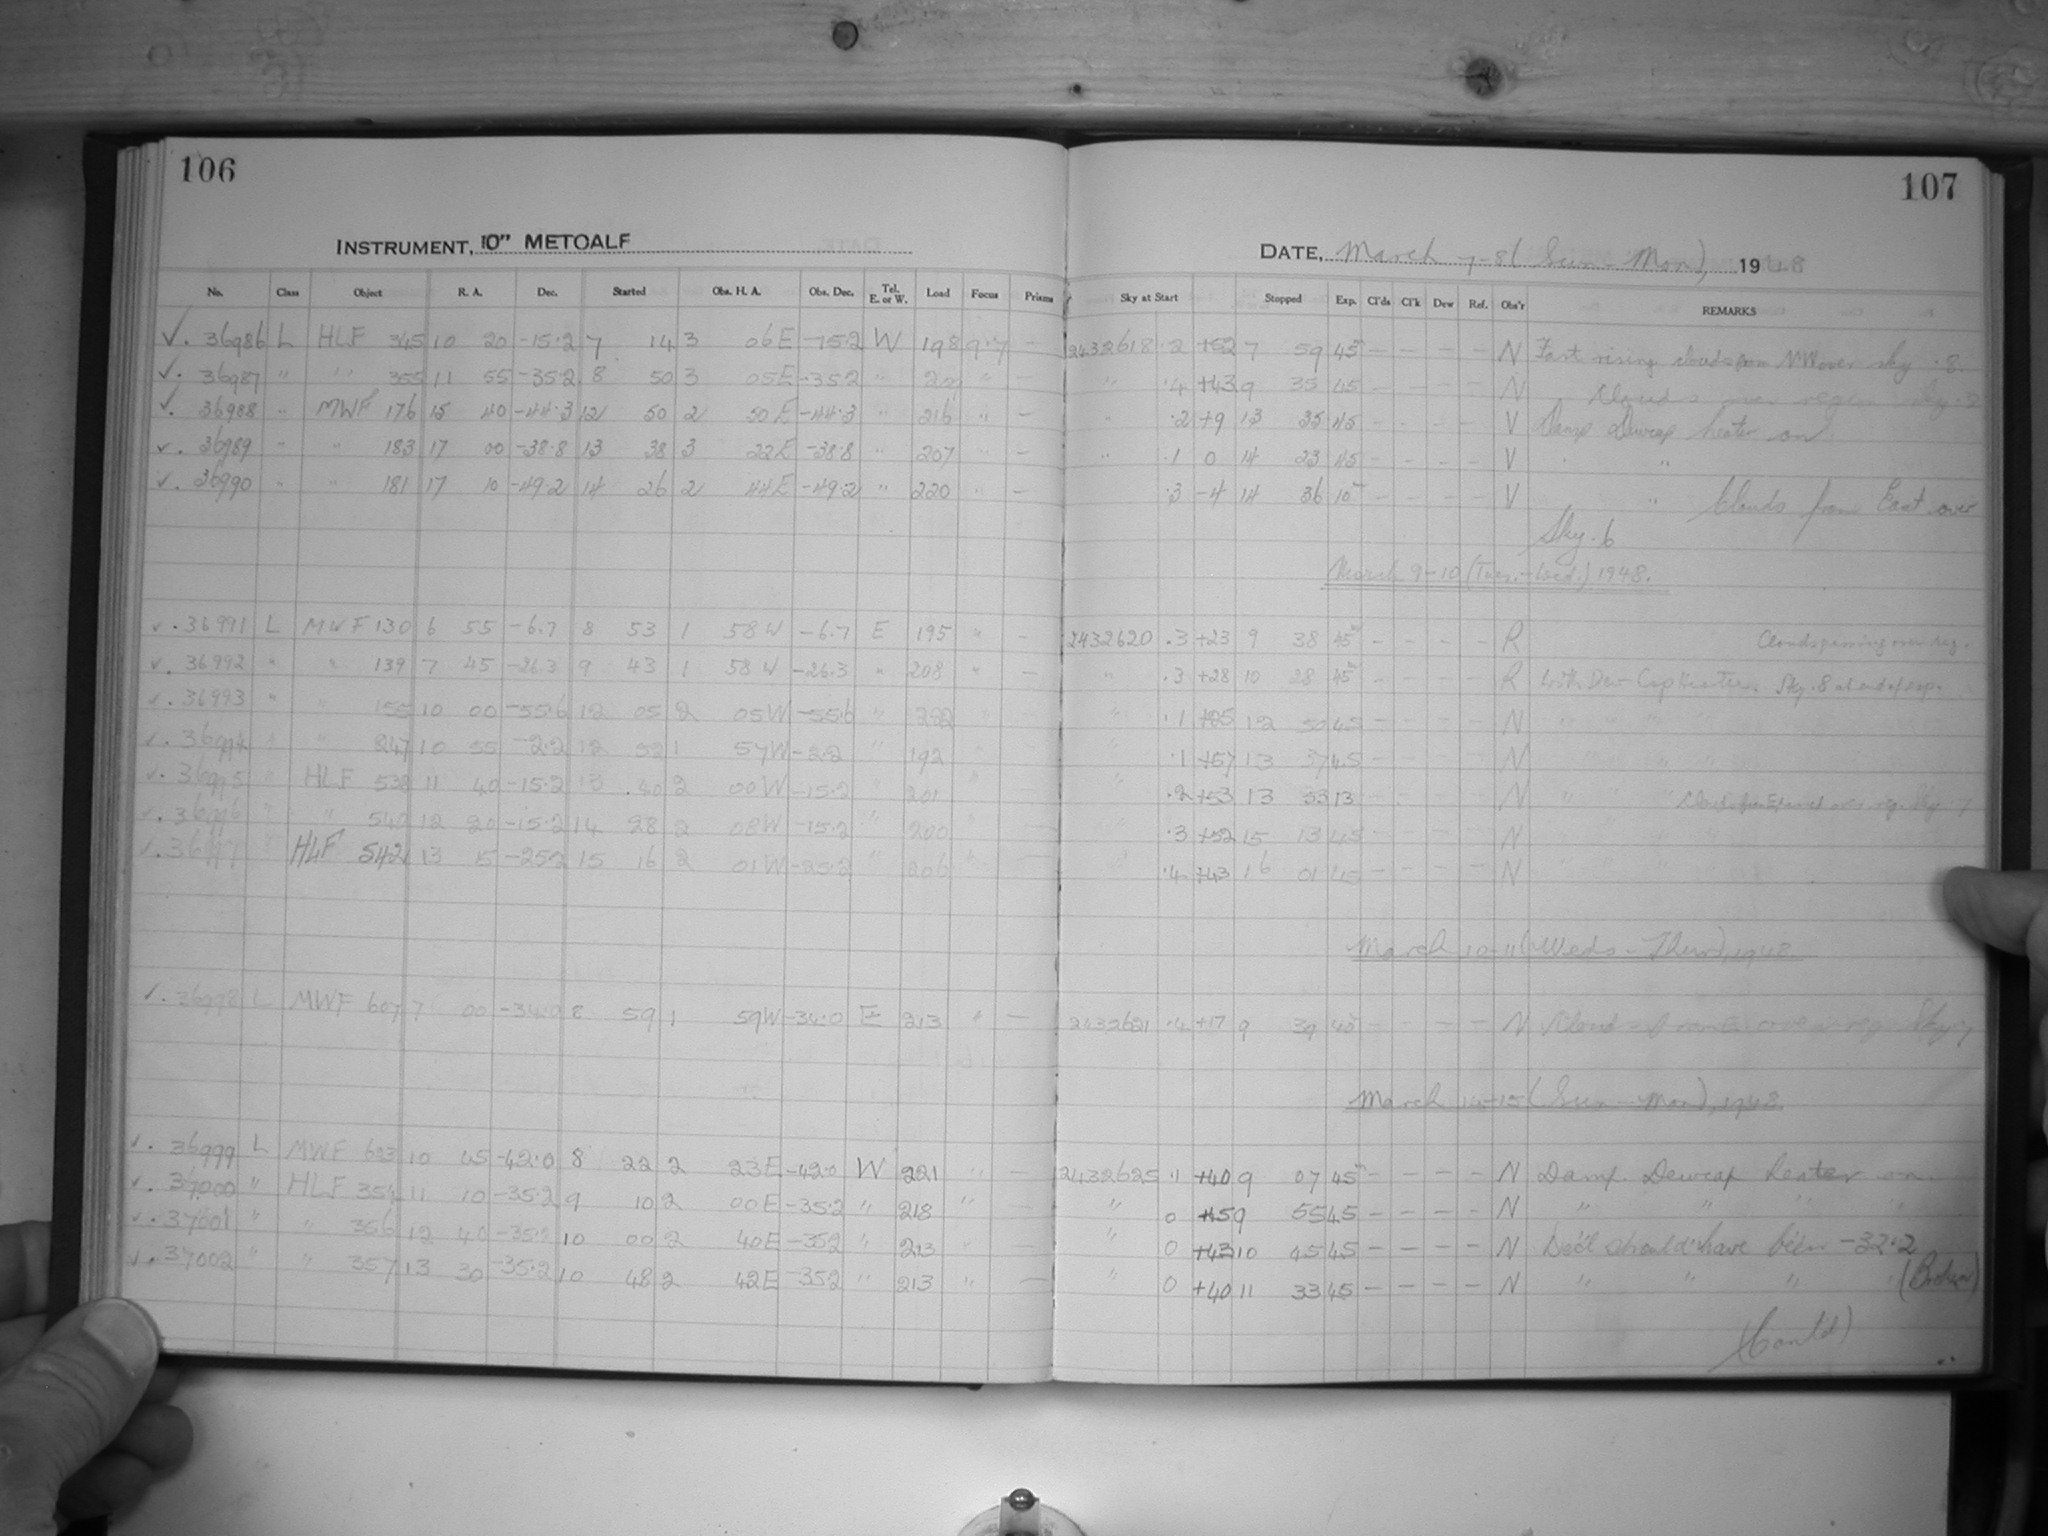 106
107
INSTRUMENT, 10" METCALF
DATE, March 7-8 (Sun-Mon), 1948
No. Class Object R. A. Dec. Started Obs. H. A. Obs. Dec. Tel. E. or W. Load Focus Prisms Sky at Start Stopped Exp. Cl'ds Cl'k Dew Ref. Obs'r REMARKS
✓. 36986 L HLF 345 10 20 -15.2 7 14 3 06E -15.2 W 198 9.7 — 2432618 .2 +52 7 59 45m — — — — N Fast rising clouds from NW over sky .8.
✓. 36987 " " 355 11 55 -35.2 8 50 3 05E -35.2 " " — " .4 +43 9 35 45 — — — — N Clouds over region
✓. 36988 " MWF 176 15 40 -44.3 12 50 2 50E -44.3 " 216 " — " .2 +9 13 35 45 — — — — V Damp Dewcap heater on
✓. 36989 " " 183 17 00 -38.8 13 38 3 22E -38.8 " 207 " — " .1 0 14 23 45 — — — — V " "
✓. 36990 " " 181 17 10 -49.2 14 26 2 44E -49.2 " 220 " — .3 -4 14 36 10m — — — — V " Clouds from East over
Sky .6
March 9-10 (Tues.-Wed.) 1948.
✓. 36991 L MWF 130 6 55 -6.7 8 53 1 58W -6.7 E 195 " — 2432620 .3 +23 9 38 45m — — — — R Clouds passing over reg.
✓. 36992 " " 139 7 45 -26.3 9 43 1 58W -26.3 " 208 " — " .3 +28 10 28 45m — — — — R With Dew-Cap Heater. Sky .8 at end of exp.
✓. 36993 " " 155 10 00 -55.6 12 05 2 05W -55.6 " " — " .1 +25 12 50 45 — — — — N " " " "
✓. 36994 " " 247 10 55 -2.2 12 52 1 57W -2.2 " 192 " — " .1 +57 13 37 45 — — — — N " " " "
✓. 36995 " HLF 538 11 40 -15.2 13 40 2 00W -15.2 " 201 " — " .2 +53 13 53 13 — — — — N " " "
✓. 36996 " " 540 12 20 -15.2 14 28 2 08W -15.2 " 200 " — " .3 +52 15 13 45 — — — — N " " " "
✓. 36997 " HLF 542 13 15 -25.2 15 16 2 01W -25.2 " 206 " — " .4 +43 16 01 45 — — — — N " " " "
March 10-11 (Weds-Thur), 1948.
✓. 36998 L MWF 607 7 00 -34.0 8 59 1 59W -34.0 E 213 " — 2432621 .4 +17 9 39 40 — — — — N Sky
March 14-15 (Sun-Mon), 1948.
✓. 36999 L MWF 623 10 45 -42.0 8 22 2 23E -42.0 W 221 " — 2432625 .1 +40 9 07 45m — — — — N Damp Dewcap heater on.
✓. 37000 " HLF 354 11 10 -35.2 9 10 2 00E -35.2 " 218 " — " 0 +45 9 55 45 — — — — N " " " "
✓. 37001 " " 356 12 40 -35.2 10 00 2 40E -35.2 " 213 " — " 0 +43 10 45 45 — — — — N Decl should have been -32.2
✓. 37002 " " 357 13 30 -35.2 10 48 2 42E -35.2 " 213 " — " 0 +40 11 33 45 — — — — N " " " "
(Cont'd)